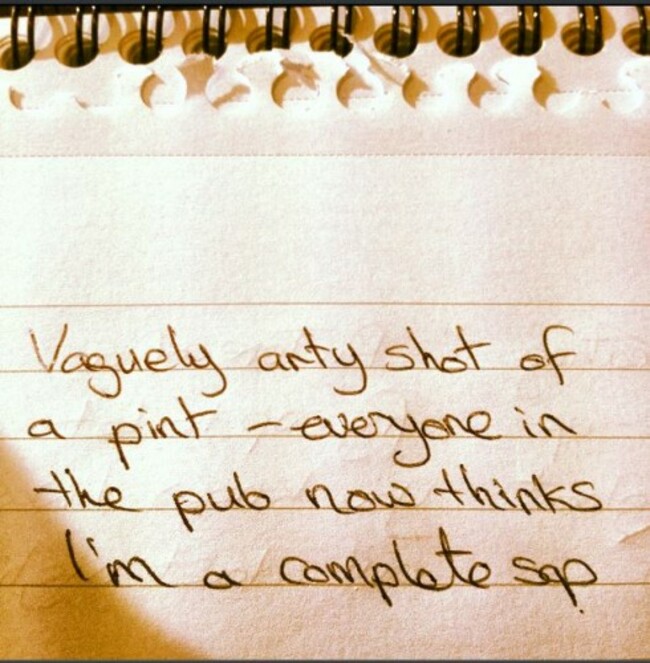 Vaguely arty shot of
a pint - everyone in
the pub now thinks
I'm a complete sap